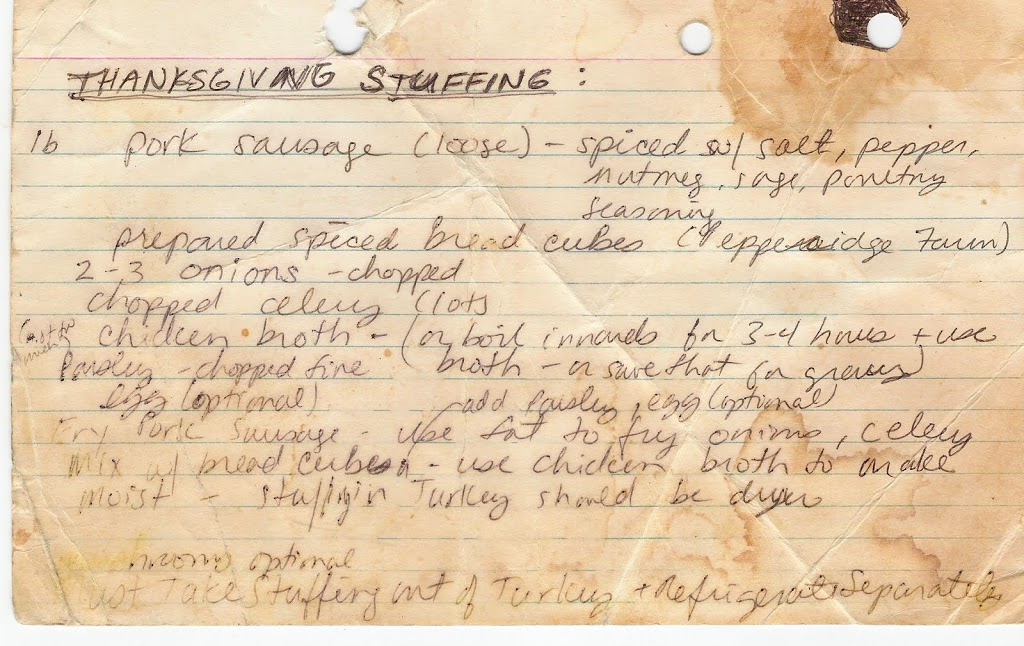 THANKSGIVING STUFFING :
1b pork sausage (loose) - spiced w/ salt, pepper,
nutmeg, sage, poultry
seasoning
prepared spiced bread cubes (Pepperidge Farm)
2-3 onions - chopped
chopped celery (lots
chicken broth - (or boil innards for 3-4 hours + use
Parsley - chopped fine broth - or save that for gravy)
egg (optional) - add parsley, egg (optional)
Fry Pork Sausage - use fat to fry onions, celery
Mix w/ bread cubes - use chicken broth to make
moist - stuffing in Turkey should be dryer
optional
Take Stuffing out of Turkey + Refrigerate Separately